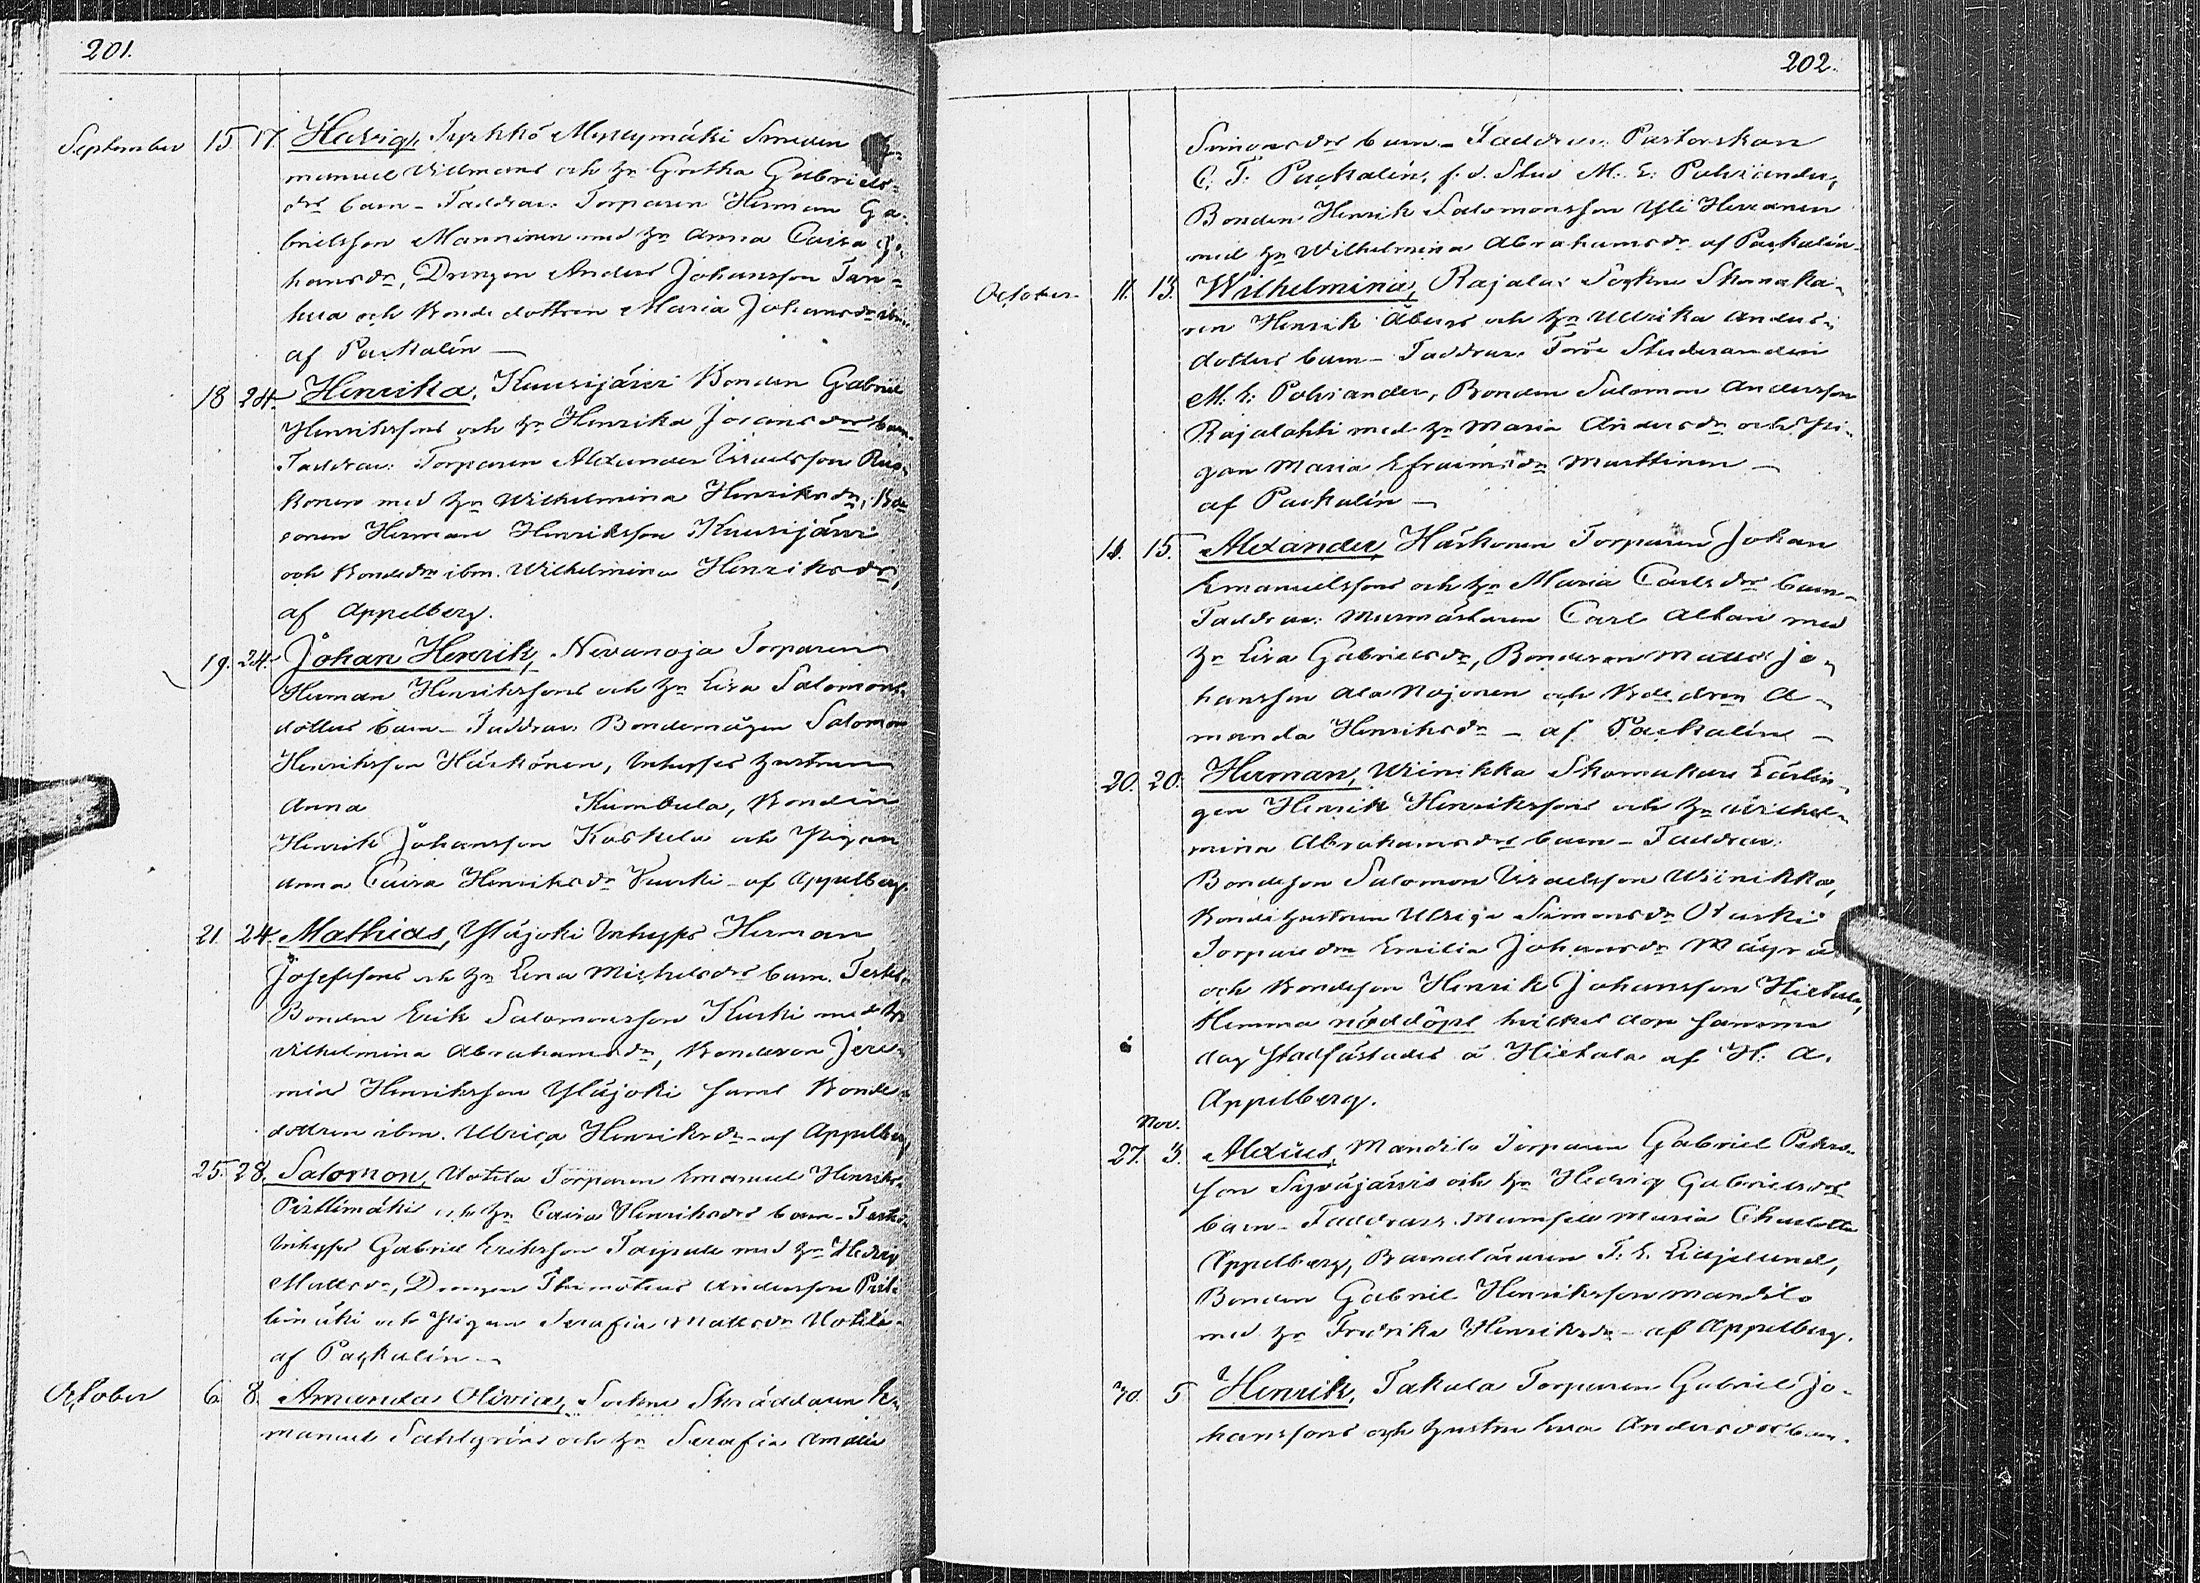 201.
September 15 17. Hedvig, Tyrkkö Myllymäki Smeden E-
manuel Vidmans och h:n Gretha Gabriels-
d:rs barn – Faddrar: Torparen Herman Ga-
brielsson Manninen med h:n Anna Caisa Jo-
hansd:r, Drengen Anders Johansson Tan-
hua och Bonde dottren Maria Johansd:r ibm
af Packalén –
18 24. Henrika, Kuusijärvi Bonden Gabriel
Henrikssons och h:n Henrika Joransd:rs barn.
Faddrar: Torparen Alexander Israelsson
konen med h:n Wilhelmina Henriksd:r, Bon
sonen Herman Henriksson Kuusijärvi
och Bonded:rn ibm. Wilhelmina Henriksd:r,
af Appelberg.
19. 24. Johan Henrik, Nevanoja Torparen
Herman Henrikssons och h:n Lisa Salomons-
dotters barn – Faddrar: Bondemågen Salomon
Henriksson Härkönen, Inhyses hustrun
Anna Kumbula, Bonden
Henrik Johansson Koskela och Pigan
Anna Caisa Henriksd:r Vuorki – af Appelberg.
21. 24. Mathias, Yläjoki Inhyses Herman
Josefssons och h:n Lena Michelsd:rs barn. Test:
Bonden Erik Salomonsson Kurki med h:n
Vilhelmina Abrahamsd:r, Bondeson Jere-
mias Henriksson Yläjoki samt Bonde-
dottren ibm. Ulrica Henriksd:r – af Appelberg
25. 28. Salomon, Uotila Torparen Emanuel Henriks-
Pistlimäkis och h:n Caisa Henriksd:rs barn – Test:
Inhyses Gabriel Eriksson Taipale med h:n Hedvig
Mattsd:r, Drengen Thimoteus Andersson Pist-
limäki och Pigan Serafia Mattsd:r Uotila
af Packalén –
October 6. 8. Amanda Olivia, Sockne Skräddaren E-
manuel Sahlgréns och h:n Serafia Amalia
202.
Simonsd:rs barn – Faddrar: Pastorskan
C. F. Packalén, f. d. Stud M. E. Polviander,
Bonden Henrik Salomonsson Yli Hirvonen
med h:n Wilhelmina Abrahamsd:r af Packalén –
October. 11. 13. Wilhelmina, Rajala: Sockne Skomaka-
ren Henrik Åbergs och h:n Ulrika Anders-
dotters barn – Faddrar: Förre Studeranden
M. E. Polviander, Bonden Salomon Andersson
Rajalahti med h:n Maria Andersd:r och Pi-
gan Maria Efraimsd:r Marttinen –
af Packalén –
11. 15. Alexander, Härkönen Torparen Johan
Emanuelssons och h:n Maria Carlsd:rs barn –
Faddrar: Murmästaren Carl Altan med
h:n Lisa Gabrielsd:r, Bondeson Matts Jo-
hansson Ala Kojonen och Bde dren A-
manda Henriksd:r – af Packalén –
20. 20. Herman, Wiinikka Skomakare Lärlin-
gen Henrik Henrikssons och h:n Wilhel-
mina Abrahamsd:rs barn – Faddrar:
Bondeson Salomon Israelsson Wiinikka,
Bonde hustrun Ulrica Simonsd:r Otuski
Torpare d:rn Emilia Johansd:r Mäyrä
och Bondeson Henrik Johansson Hietala,
Hemma nöddöpt hvilket dop samma
dag stadfästades å Hietala af H. A.
Appelberg.
Nov.
27. 3. Alexius, Mandila Torparen Gabriel Peters-
son Syväjärvis och h:n Hedvig Gabrielsd:rs
barn – Faddrar: Mamsell Maria Charlotta
Appelberg, Barnaläraren F. E. Liljelund,
Bonden Gabriel Henriksson Mandila
med h:n Fredrika Henriksd:r – af Appelberg.
30. 5 Henrik, Takala Torparen Gabriel Jo-
hanssons och hustru Lisa Andersd:rs barn.